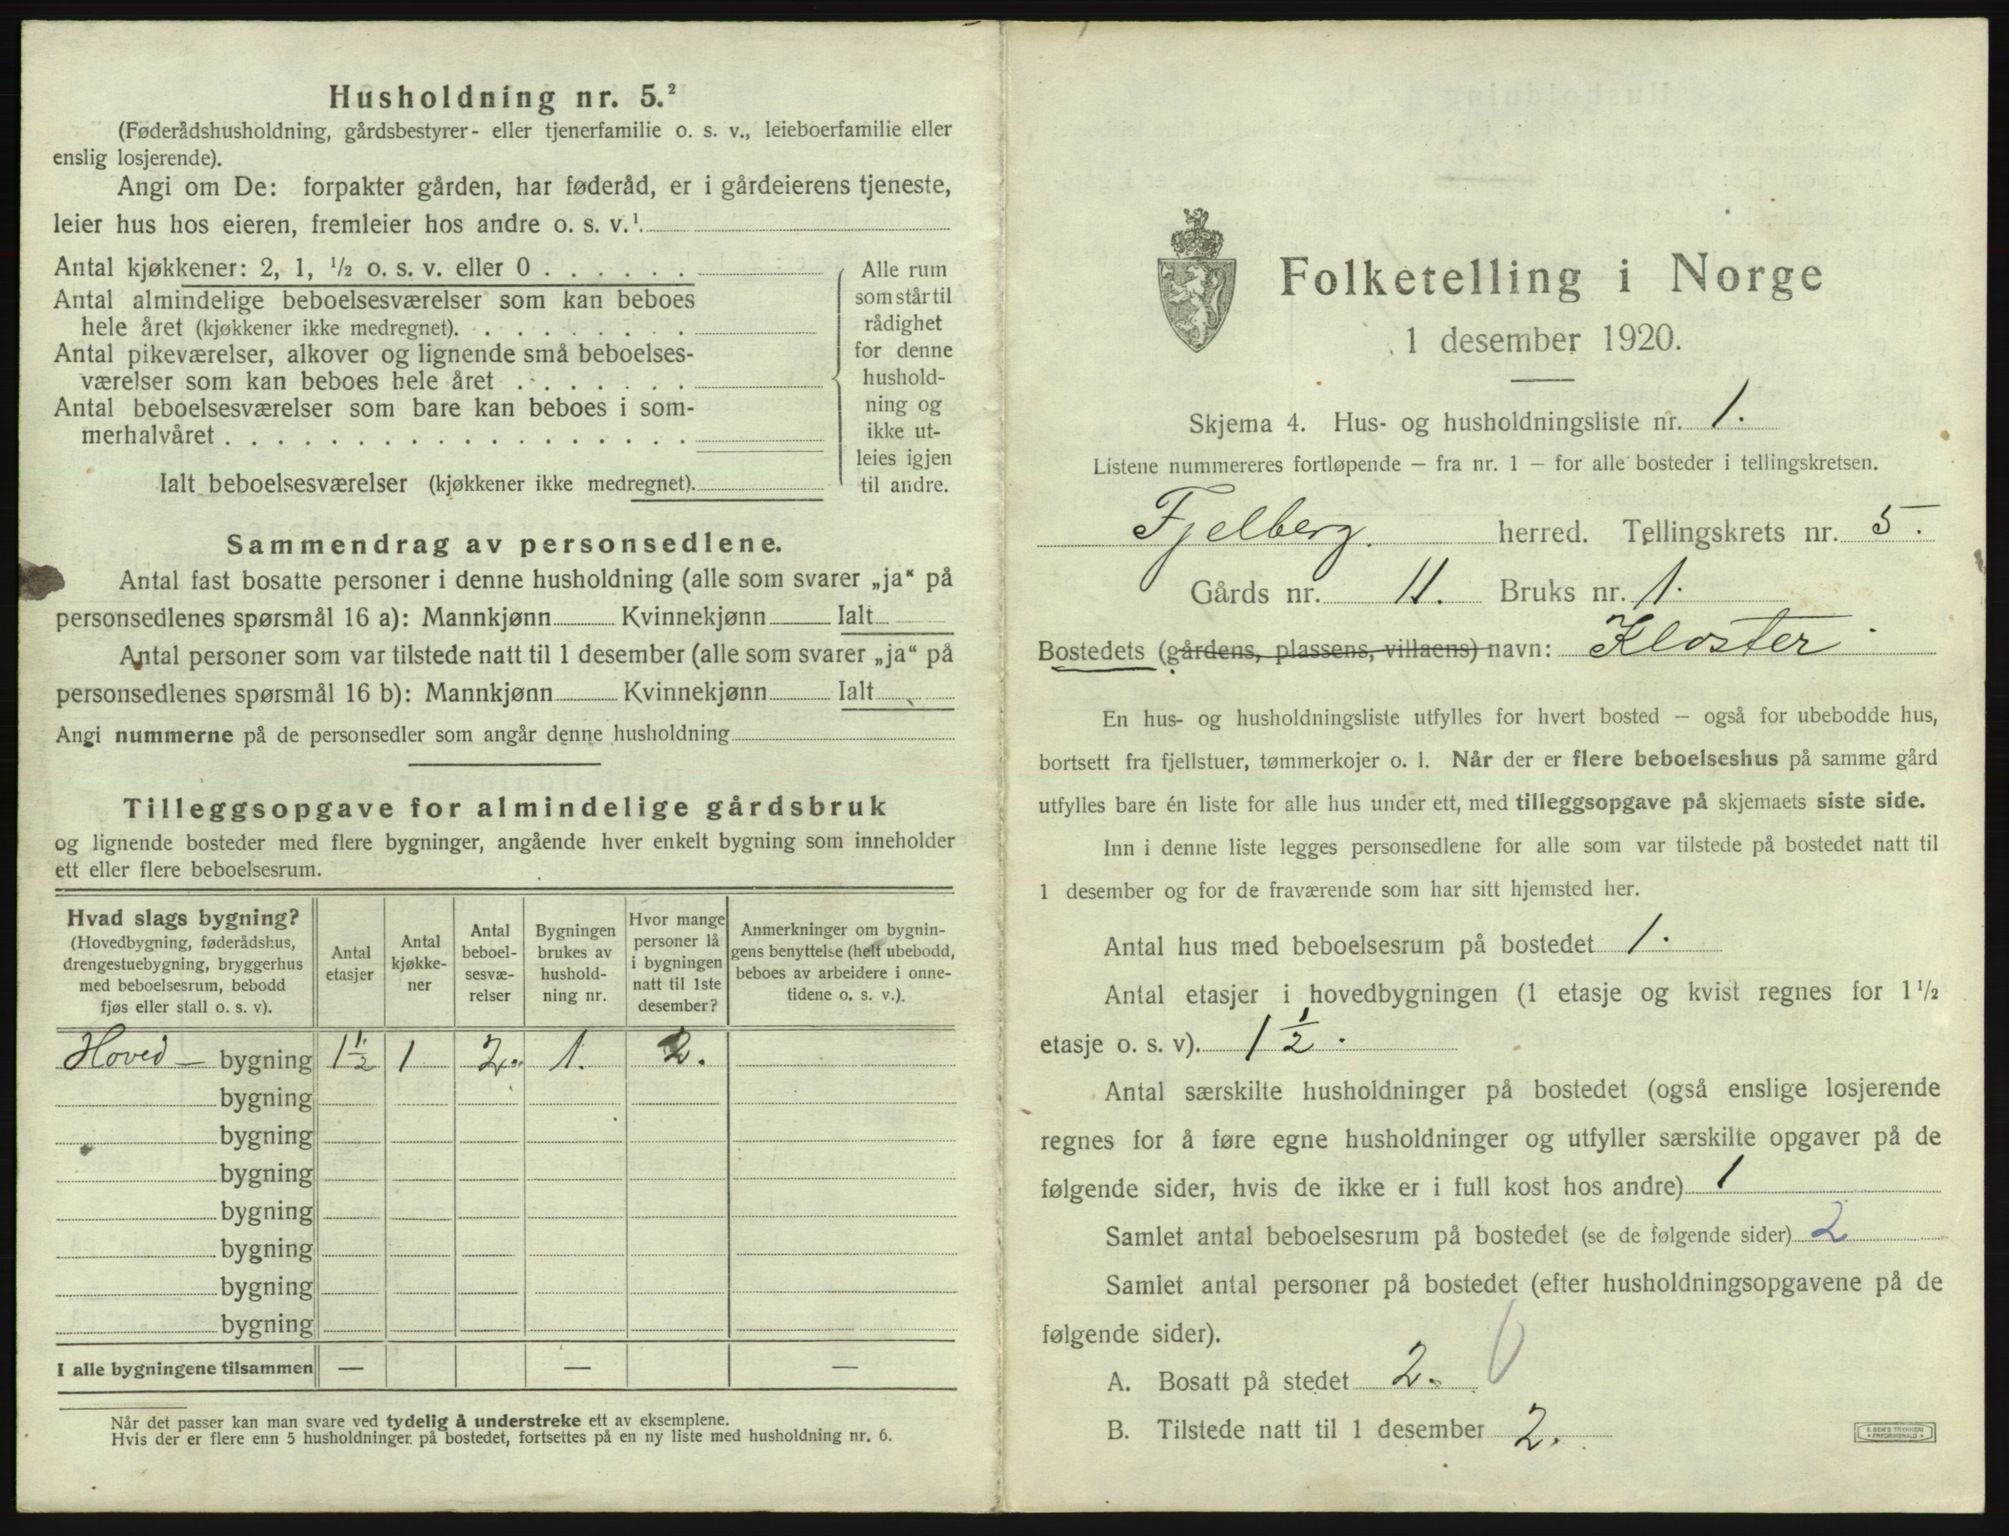 Husholdning nr. 5.²
(Føderådshusholdning, gårdsbestyrer- eller tjenerfamilie o. s. v., leieboerfamilie eller
enslig losjerende).
Angi om De: forpakter gården, har føderåd, er i gårdeierens tjeneste,
leier hus hos eieren, fremleier hos andre o. s. v.¹
Antal kjøkkener: 2, 1, ½ o. s. v. eller 0
Antal almindelige beboelsesværelser som kan beboes
hele året (kjøkkener ikke medregnet).
Antal pikeværelser, alkover og lignende små beboelses-
værelser som kan beboes hele året
Antal beboelsesværelser som bare kan beboes i som-
merhalvåret
Ialt beboelsesværelser (kjøkkener ikke medregnet).
Alle rum
som står til
rådighet
for denne
hushold-
ning og
ikke ut-
leies igjen
til andre.
Sammendrag av personsedlene.
Antal fast bosatte personer i denne husholdning (alle som svarer „ja“ på
personsedlenes spørsmål 16 a): Mannkjønn Kvinnekjønn Ialt
Antal personer som var tilstede natt til 1 desember (alle som svarer „ja“ på
personsedlenes spørsmål 16 b): Mannkjønn Kvinnekjønn Ialt
Angi nummerne på de personsedler som angår denne husholdning
Tilleggsopgave for almindelige gårdsbruk
og lignende bosteder med flere bygninger, angående hver enkelt bygning som inneholder
ett eller flere beboelsesrum.
Hvad slags bygning?
(Hovedbygning, føderådshus,
drengestuebygning, bryggerhus
med beboelsesrum, bebodd
fjøs eller stall o. s. v).
Antal
etasjer
Antal
kjøkke-
ner
Antal
beboel-
sesvæ-
relser
Bygningen
brukes av
hushold-
ning nr.
Hvor mange
personer lå
i bygningen
natt til 1ste
desember?
Anmerkninger om bygnin-
gens benyttelse (helt ubebodd,
beboes av arbeidere i onne-
tidene o. s. v.).
Hoved- bygning 1½ 1 2. 1. 2.
bygning
bygning
bygning
bygning
bygning
bygning
bygning
I alle bygningene tilsammen — — —
Når det passer kan man svare ved tydelig å understreke ett av eksemplene.
Hvis der er flere enn 5 husholdninger på bostedet, fortsettes på en ny liste med husholdning nr. 6.
Folketelling i Norge
1 desember 1920.
Skjema 4. Hus- og husholdningsliste nr. 1.
Listene nummereres fortløpende – fra nr. 1 – for alle bosteder i tellingskretsen.
Fjelberg. herred. Tellingskrets nr. 5.
Gårds nr. 11. Bruks nr. 1.
Bostedets (gårdens, plassens, villaens) navn: Kloster
En hus- og husholdningsliste utfylles for hvert bosted – også for ubebodde hus,
bortsett fra fjellstuer, tømmerkojer o. l. Når der er flere beboelseshus på samme gård
utfylles bare én liste for alle hus under ett, med tilleggsopgave på skjemaets siste side.
Inn i denne liste legges personsedlene for alle som var tilstede på bostedet natt til
1 desember og for de fraværende som har sitt hjemsted her.
Antal hus med beboelsesrum på bostedet 1.
Antal etasjer i hovedbygningen (1 etasje og kvist regnes for 1 ½
etasje o. s. v). 1½.
Antal særskilte husholdninger på bostedet (også enslige losjerende
regnes for å føre egne husholdninger og utfyller særskilte opgaver på de
følgende sider, hvis de ikke er i full kost hos andre) 1
Samlet antal beboelsesrum på bostedet (se de følgende sider) 2
Samlet antal personer på bostedet (efter husholdningsopgavene på de
følgende sider).
A. Bosatt på stedet 2.
B. Tilstede natt til 1 desember 2.